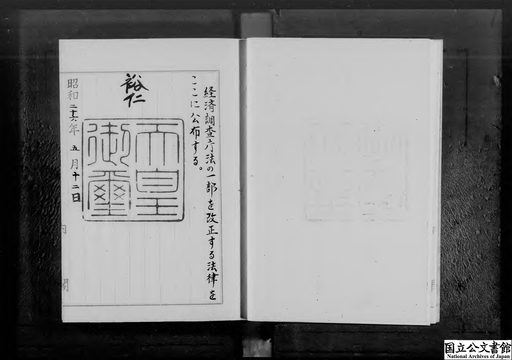 経済調査庁法の一部を改正する法律を
ここに公布する。
裕仁
天皇
御璽
昭和二十六年五月十二日
国立公文書館
National Archives of Japan